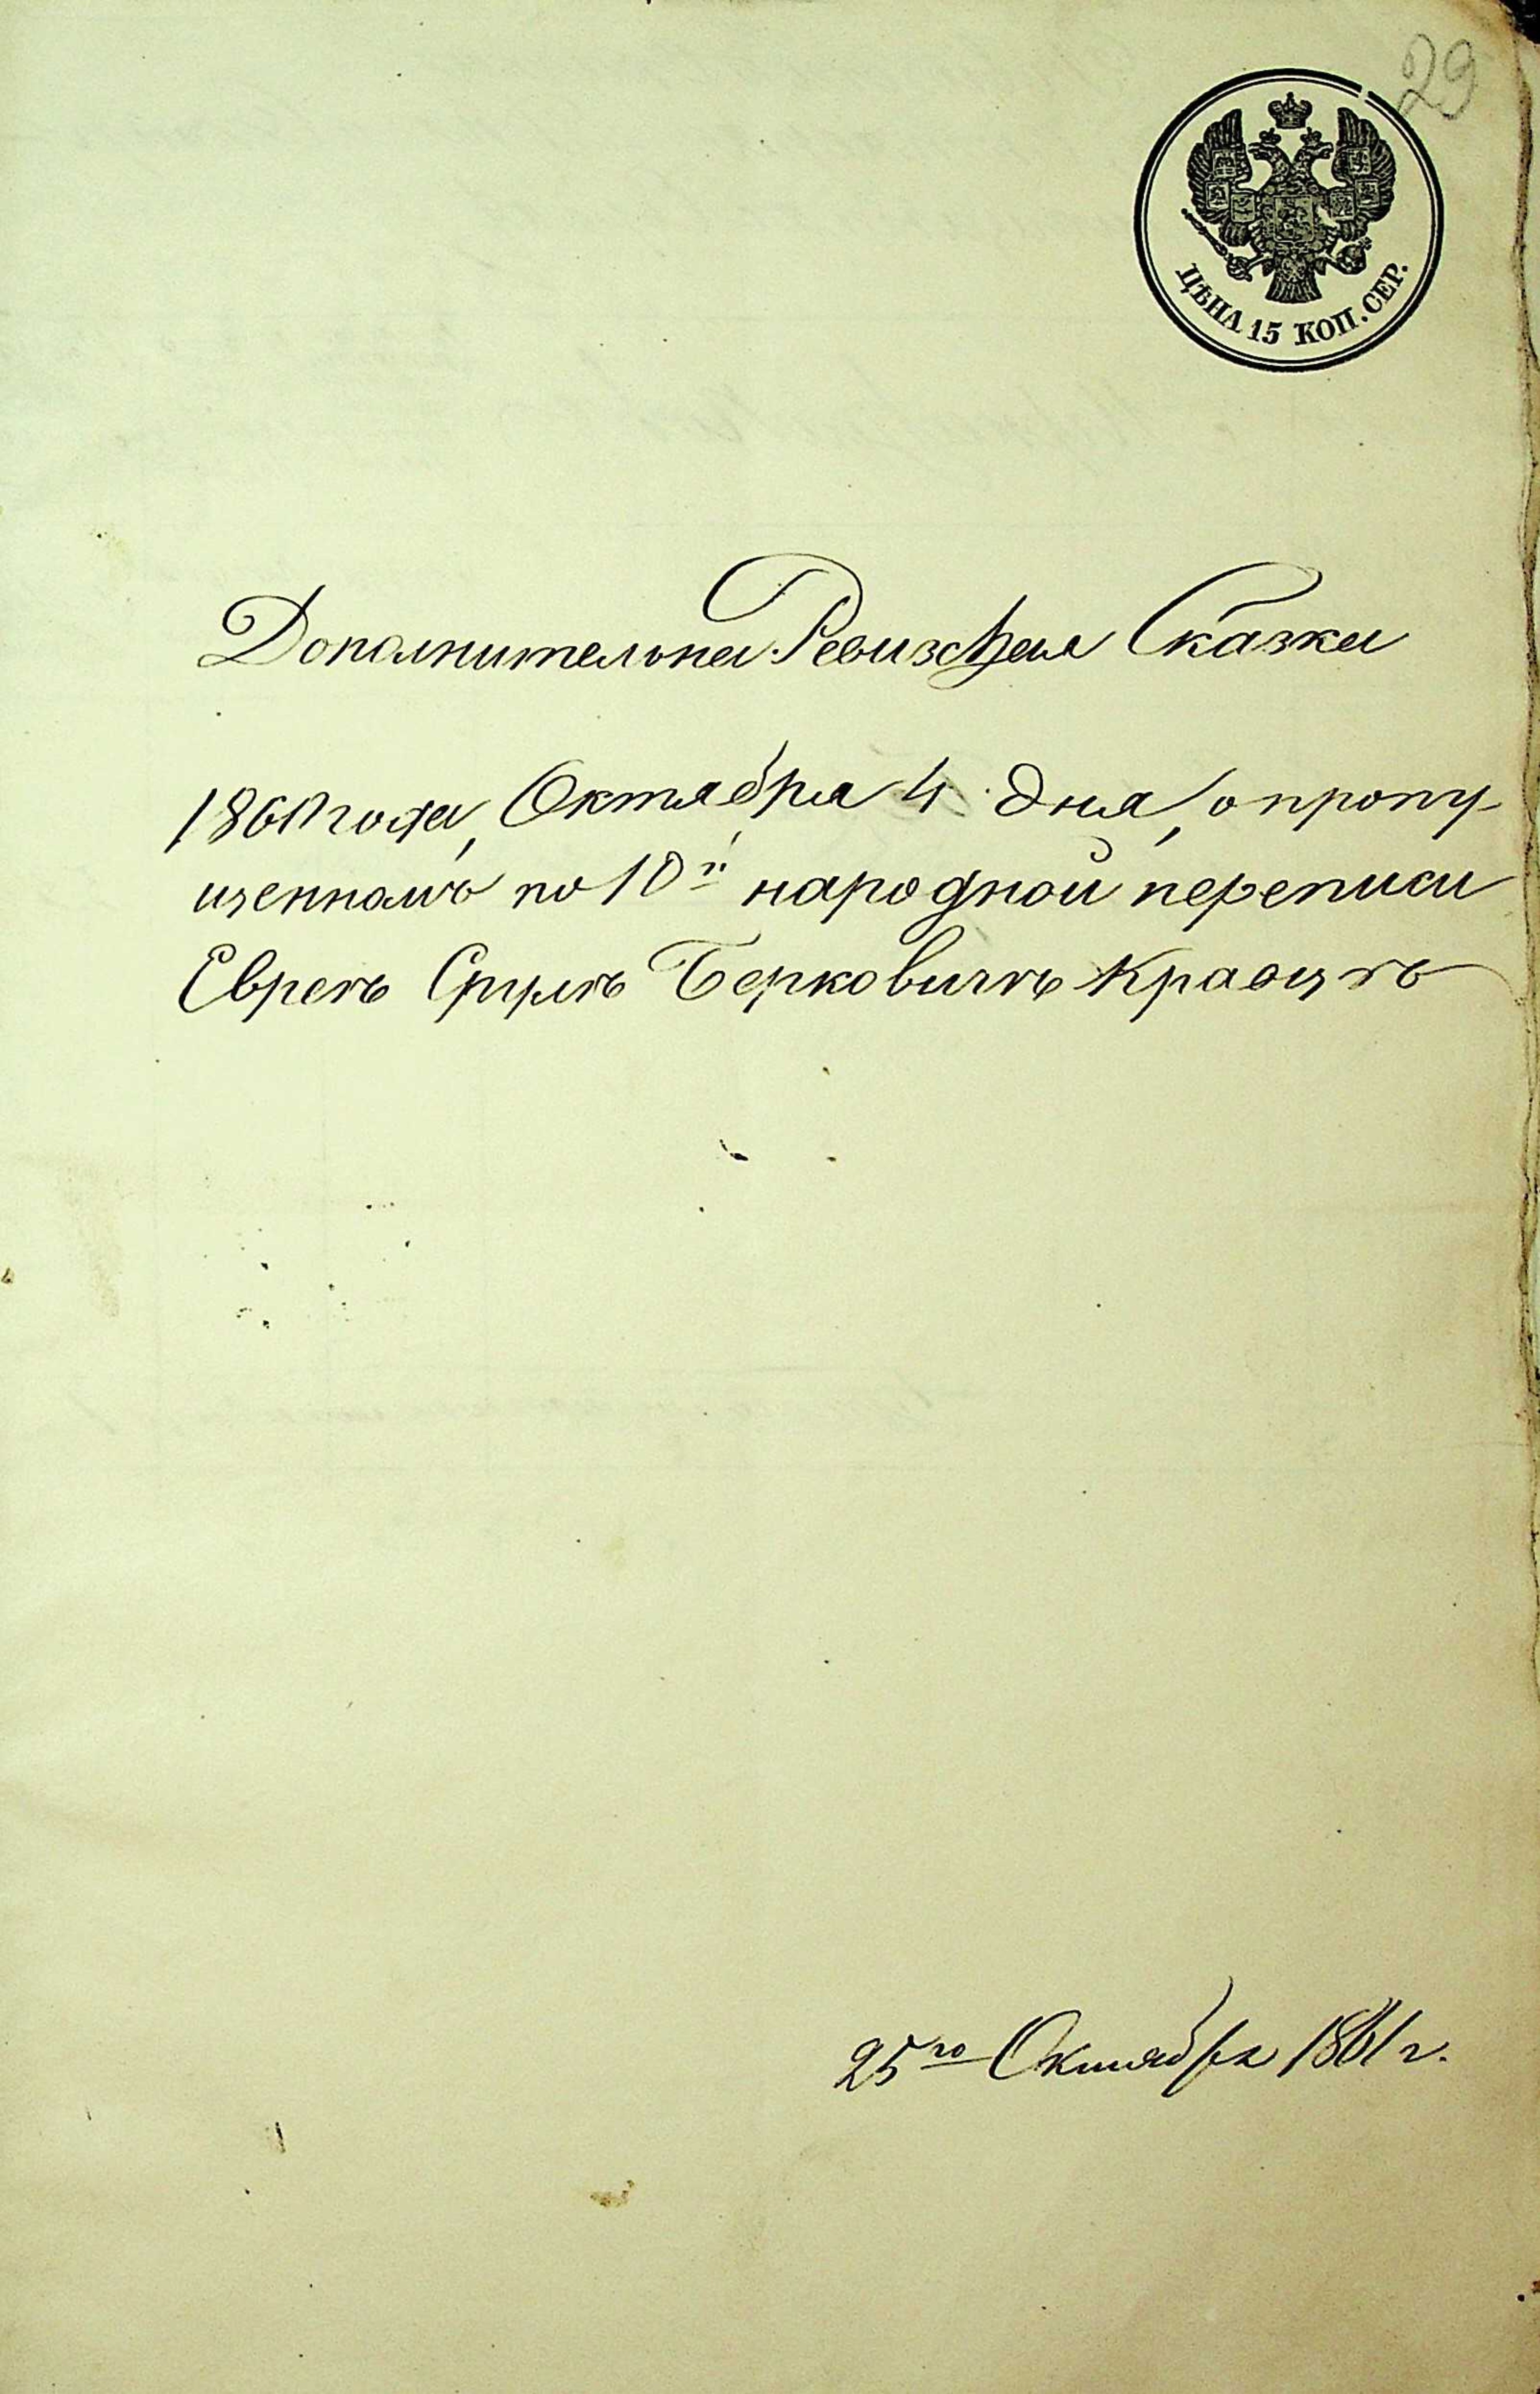 29
ЦѢНА 15 КОП. СЕР.
Дополнительна Ревизская Сказка
186 года, Октября 4 дня, о пропу-
щенномъ по 10й народной переписи
Евреѣ Сруль Берковичѣ Кравцѣ
25го Октября 1861 г.